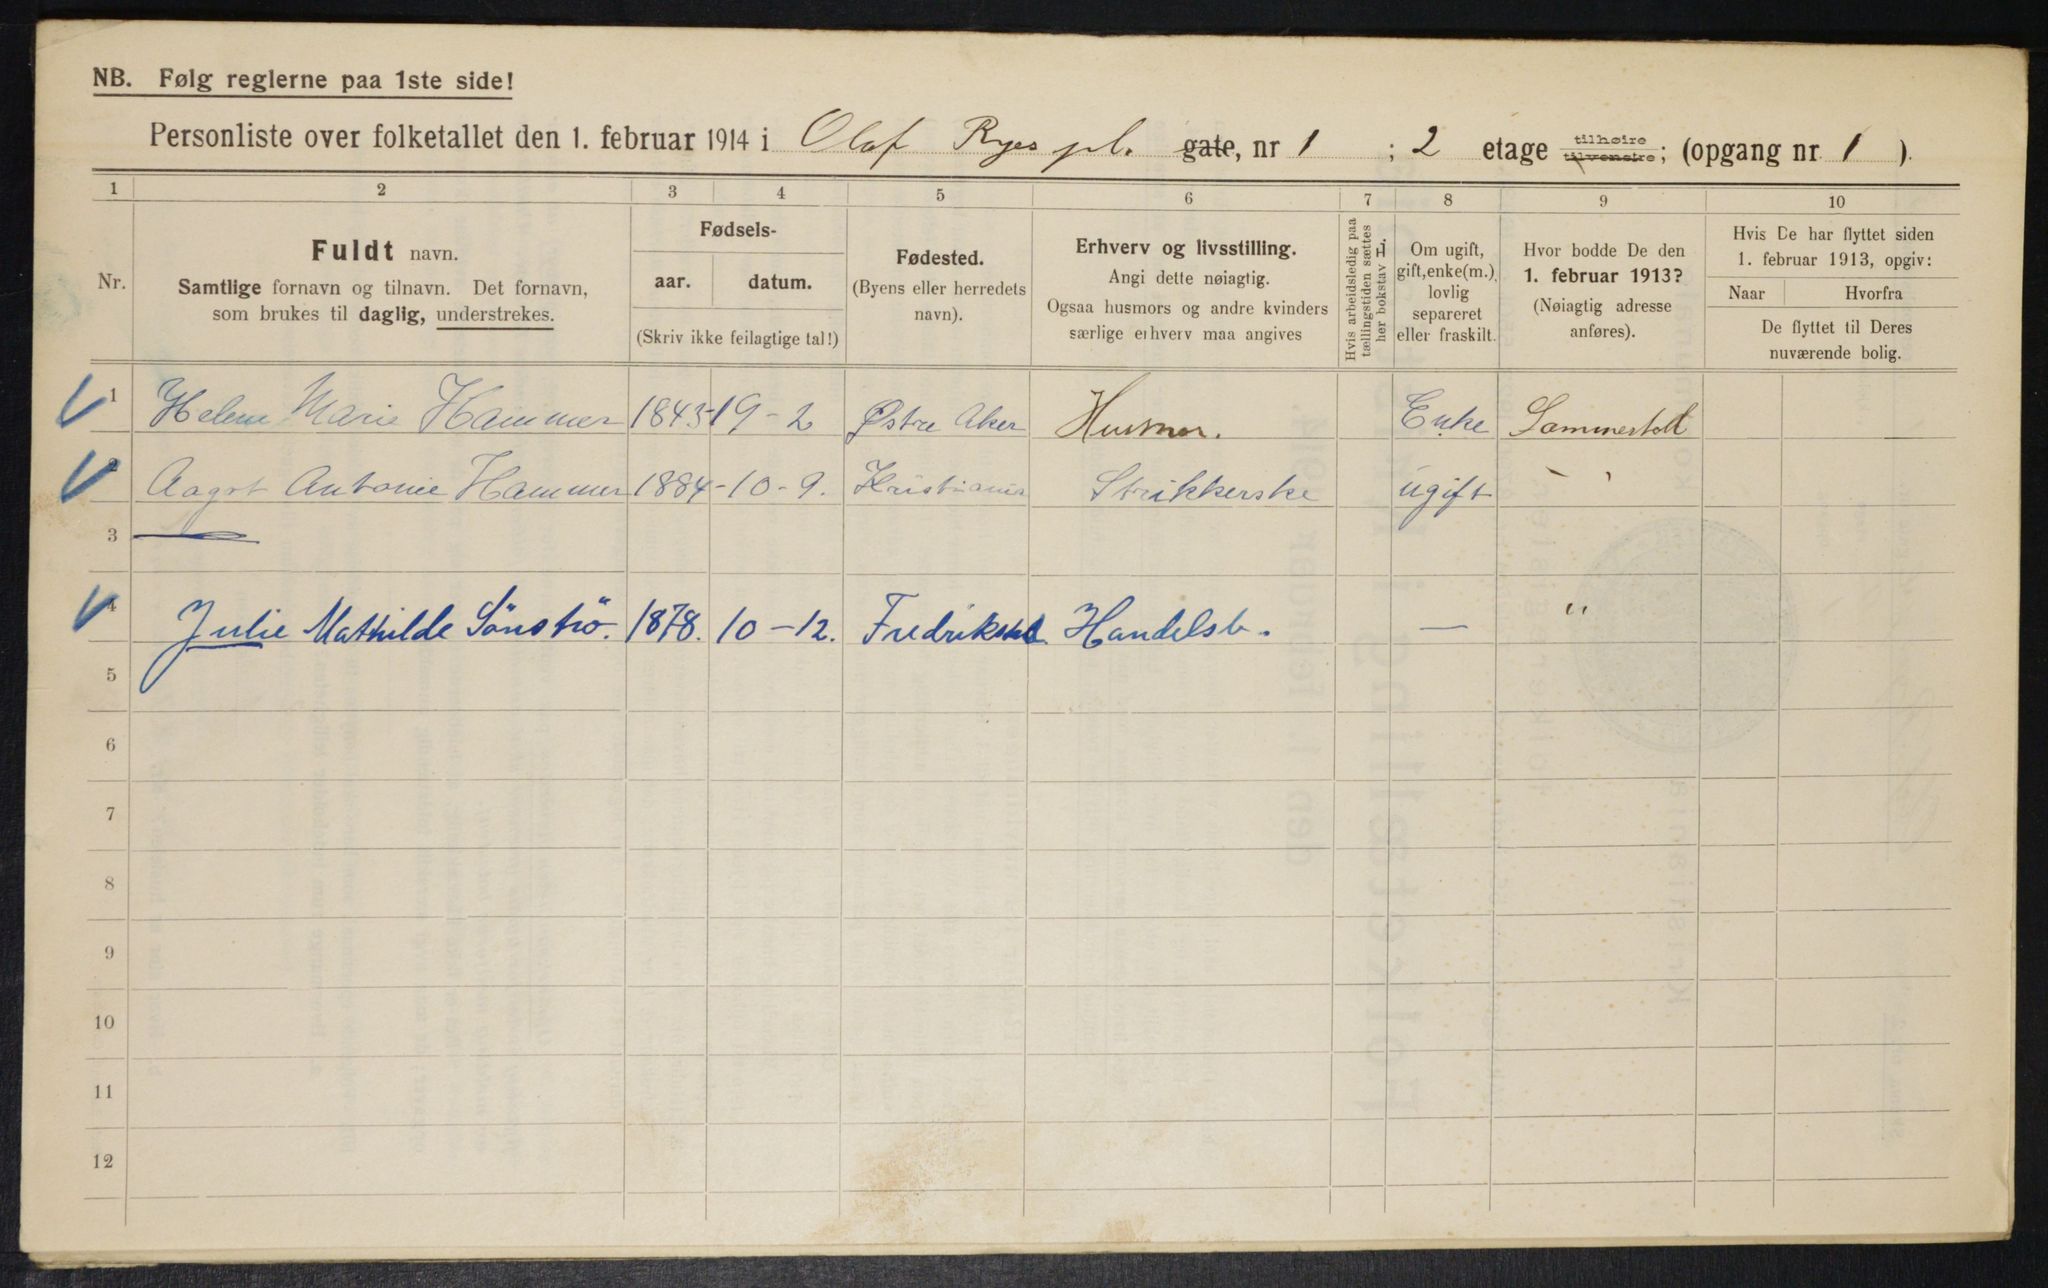 NB. Følg reglerne paa 1ste side!
Personliste over folketallet den 1. februar 1914 i Olaf Ryes pl. gate, nr 1 ; 2 etage tilhøire tilvenstre; (opgang nr. 1 ).
1 2 3 4 5 6 7 8 9 10
Nr.
Fuldt navn.
Samtlige fornavn og tilnavn. Det fornavn,
som brukes til daglig, understrekes.
Fødsels-
aar. datum.
(Skriv ikke feilagtige tal!)
Fødested.
(Byens eller herredets
navn).
Erhverv og livsstilling.
Angi dette nøiagtig.
Ogsaa husmors og andre kvinders
særlige erhverv maa angives
Hvis arbeidsledig paa
tællingstiden sættes
her bokstav L
Om ugift,
gift, enke(m.),
lovlig
separeret
eller fraskilt.
Hvor bodde De den
1. februar 1913?
(Nøiagtig adresse
anføres).
Hvis De har flyttet siden
1. februar 1913, opgiv:
Naar Hvorfra
De flyttet til Deres
nuværende bolig.
1 Helene Marie Hammer 1843 19-2 Østre Aker Husmor. Enke Sammested
2 Aagot Antonie Hammer 1884 - 10-9. Kristiania Strikkerske ugift " "
3
4 Julie Mathilde Sönströ. 1878. 10-12. Fredrikstad Handelsb. — "
5
6
7
8
9
10
11
12